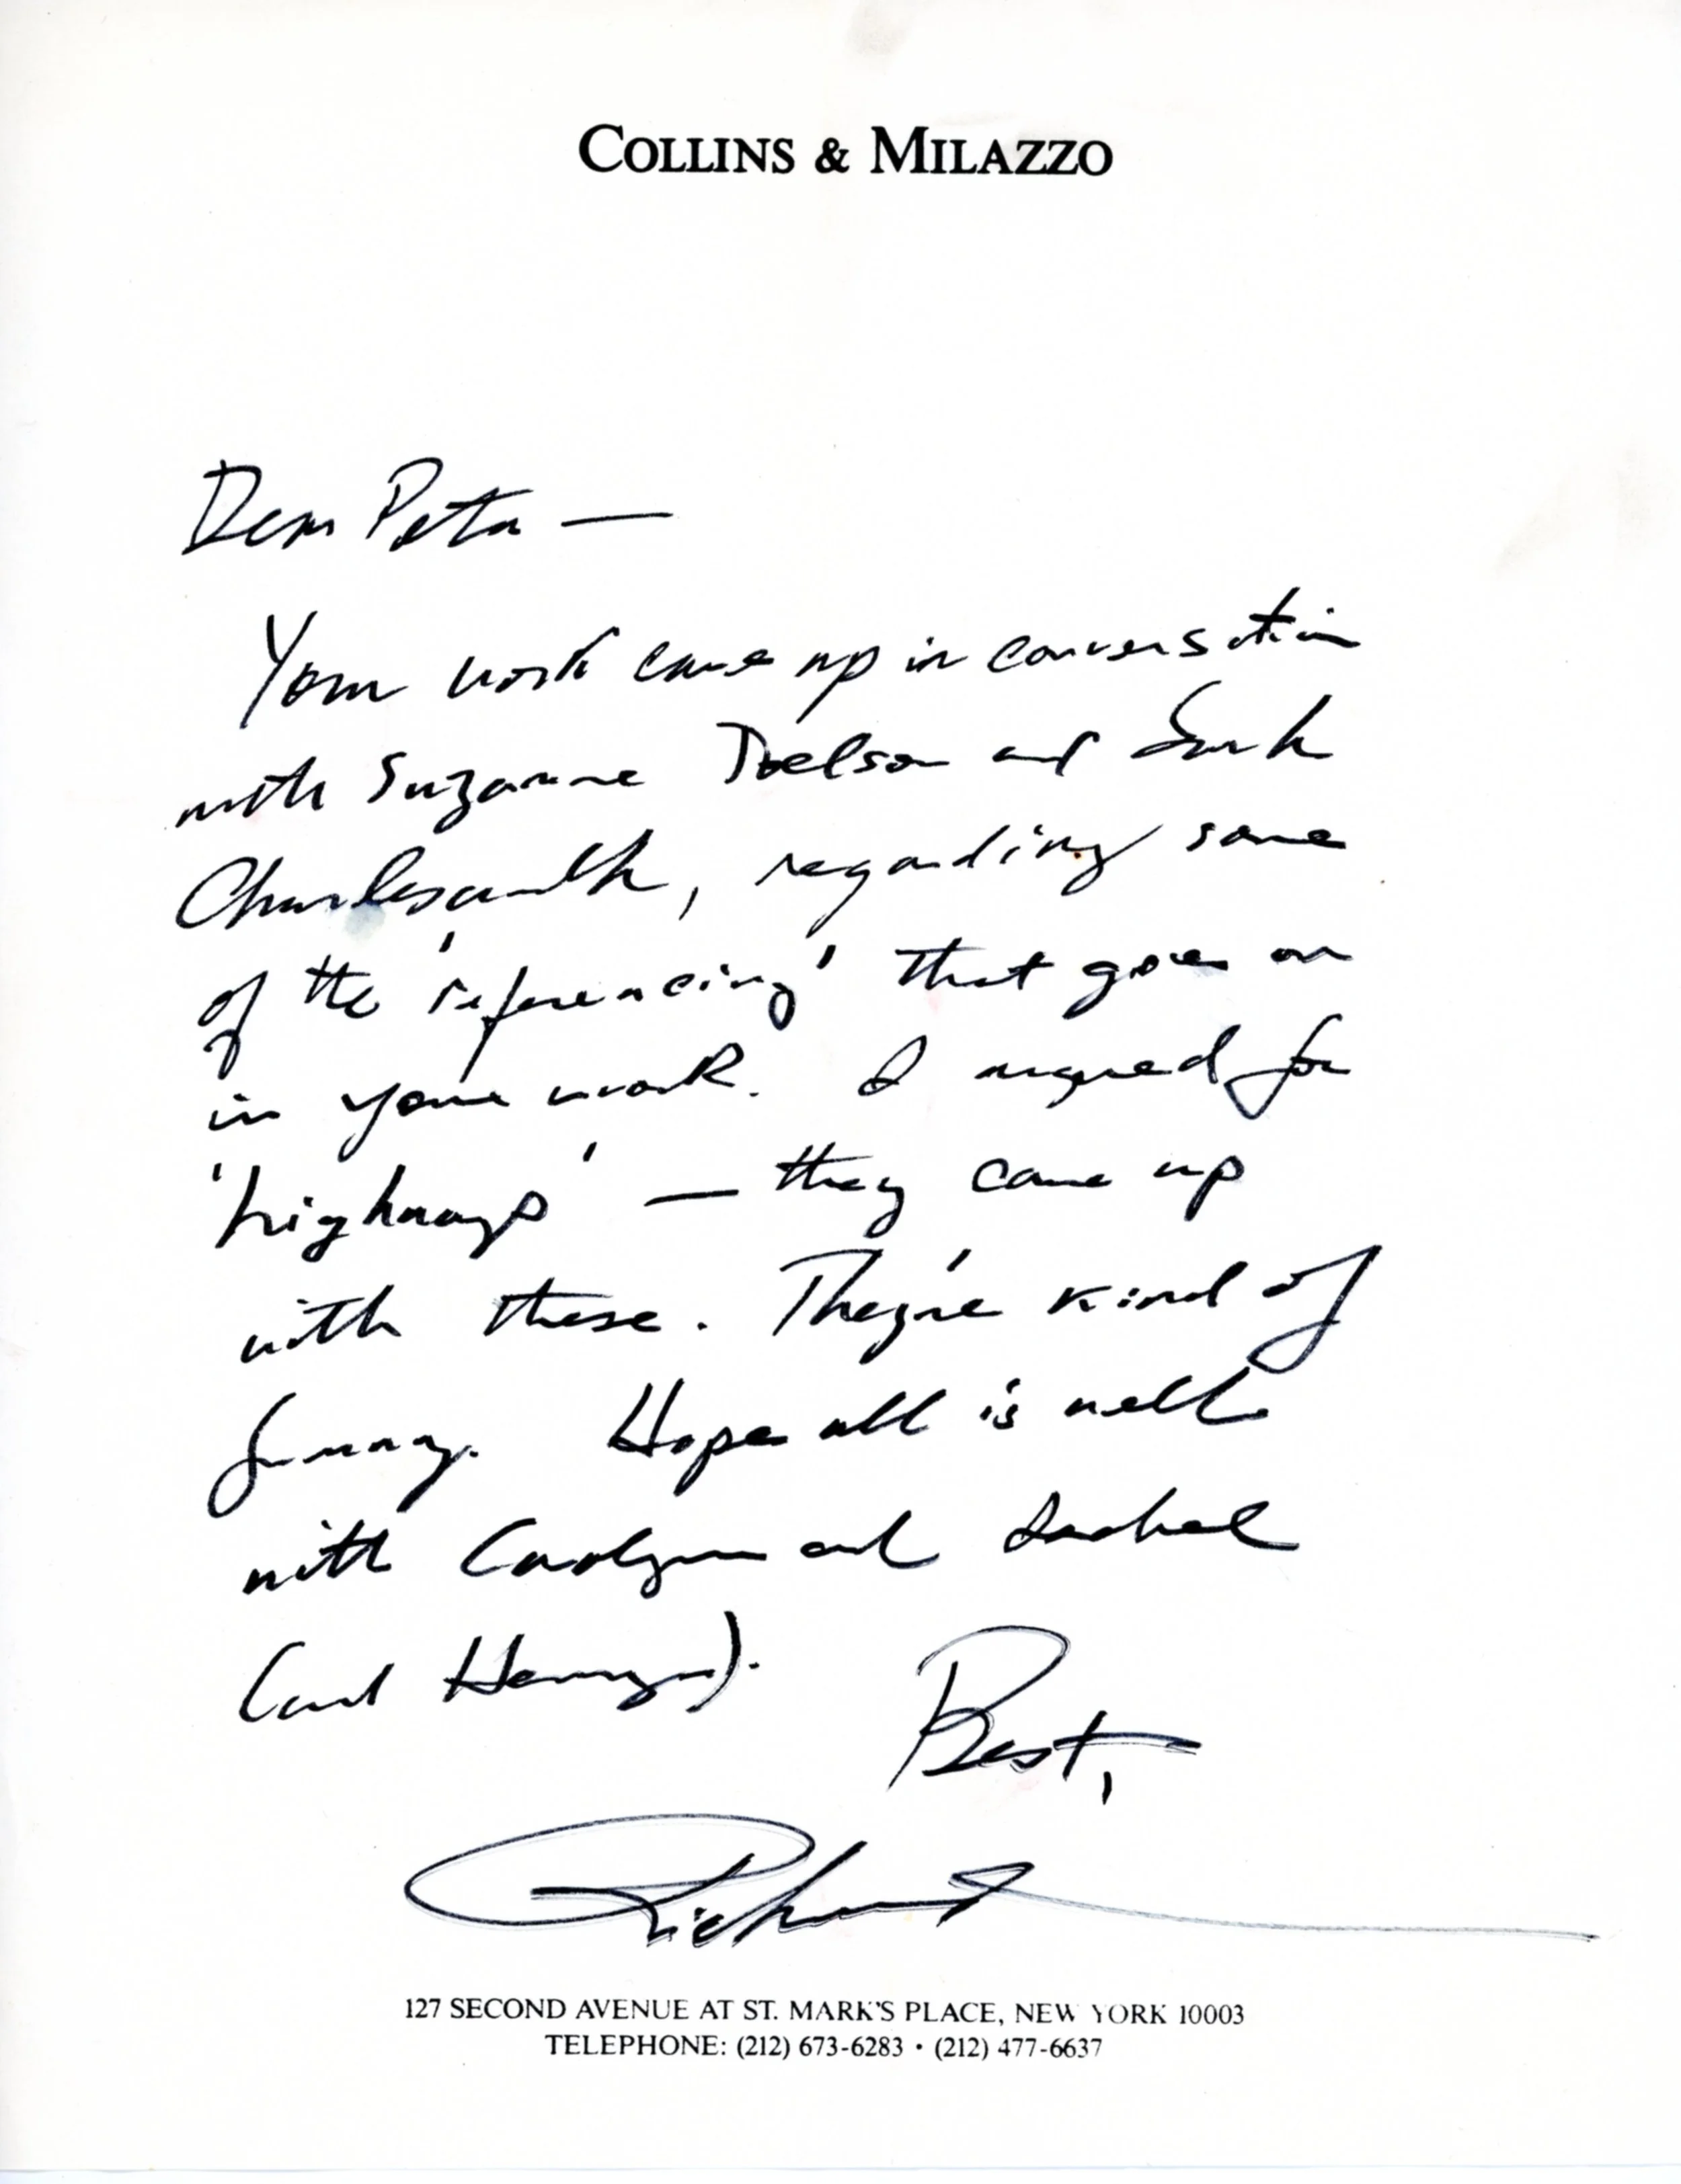 COLLINS & MILAZZO
Dear Peter —
Your work came up in conversation
with Suzanne Joelson and Sarah
Charlesworth, regarding some
of the 'referencing' that goes on
in your work. I argued for
'highways' — they came up
with these. They're kind of
funny. Hope all is well
with Carolyn and Isabel
(and Henry).
Best,
Richard
127 SECOND AVENUE AT ST. MARK'S PLACE, NEW YORK 10003
TELEPHONE: (212) 673-6283 • (212) 477-6637